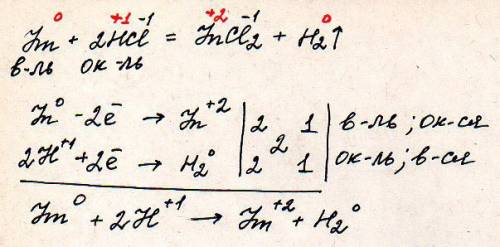 0 +1 -1 +2 -1 0
Zn + 2HCl = ZnCl₂ + H₂↑
в-ль ок-ль
Zn⁰ - 2ē → Zn⁺² | 2 | 1 | в-ль; ок-ся
2
2H⁺¹ + 2ē → H₂⁰ | 2 | 1 | ок-ль; в-ся
Zn⁰ + 2H⁺¹ → Zn⁺² + H₂⁰